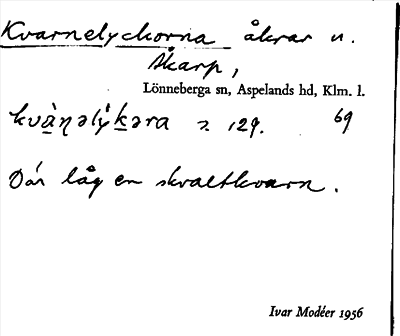 Kvarnelyckorna åkrar u.
Skarp,
Lönneberga sn, Aspelands hd, Klm. l.
129. 69
Där låg en skvaltkvarn.
Ivar Modéer 1956